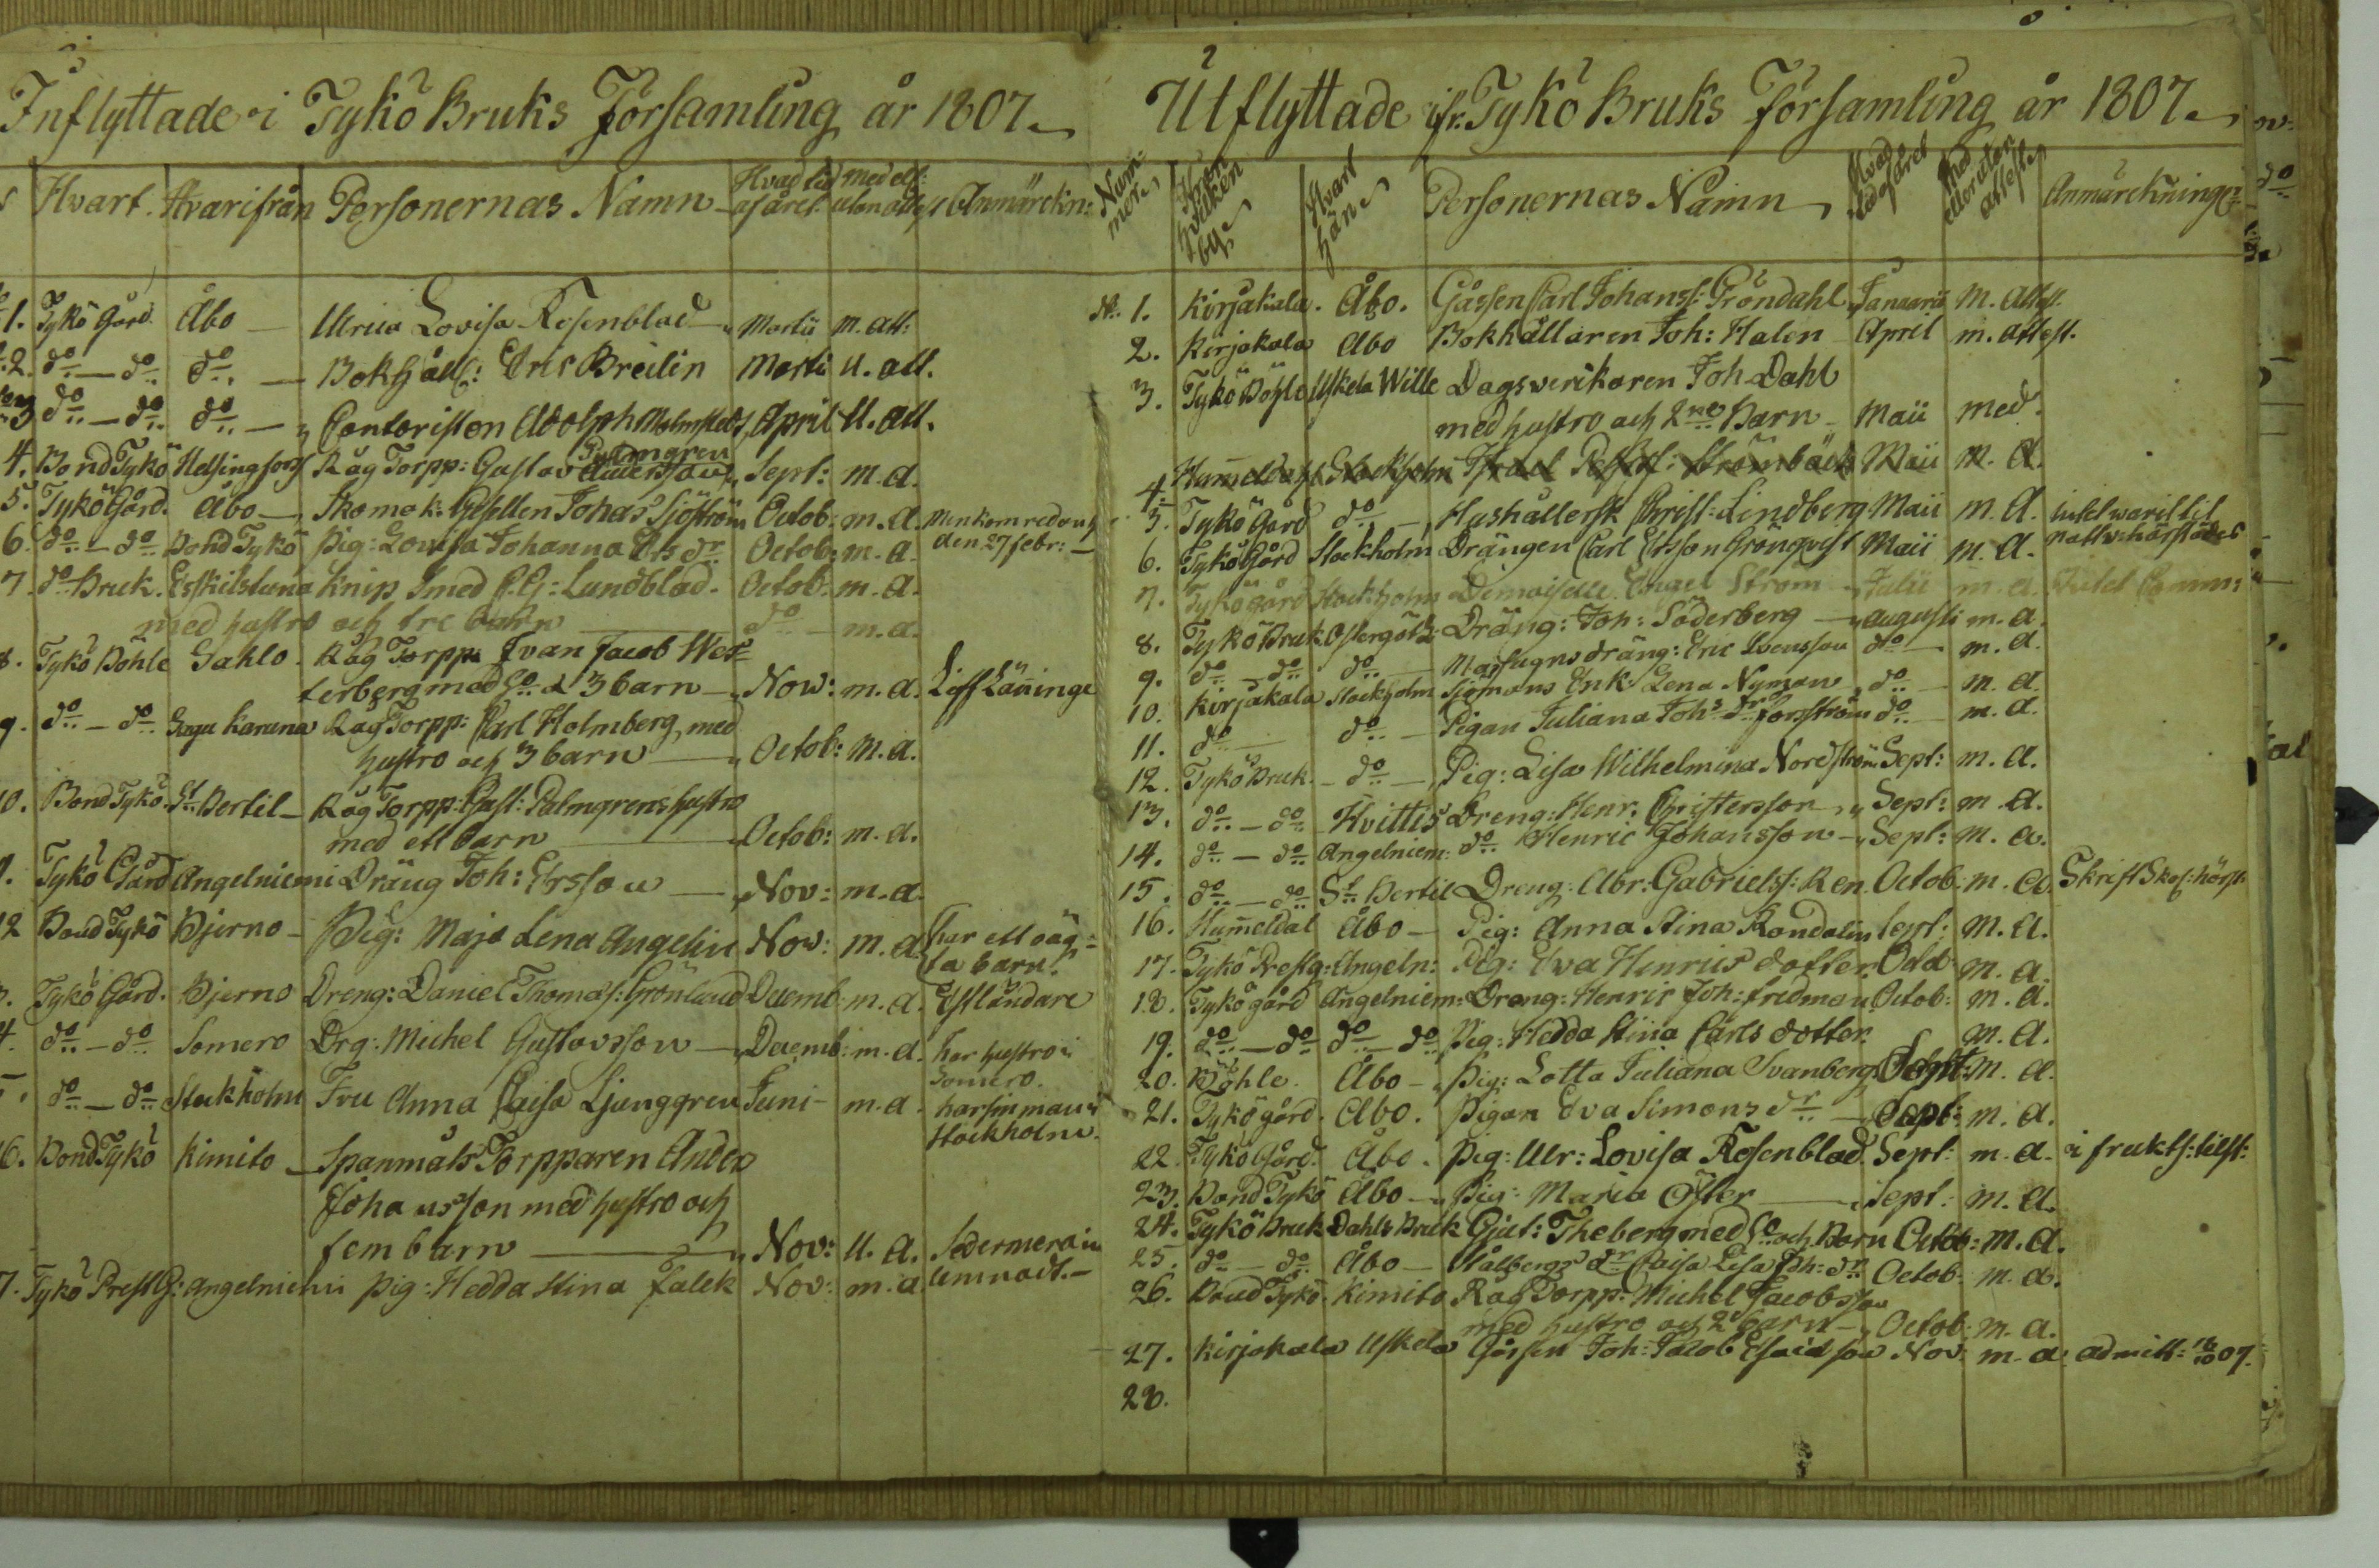 Inflyttade i Tykö Bruks Församling år 1807.
Hvart. Hvarifrån Personernas Namn Hvad tid af året med ell: utan attest Anmärckn:
1. Tykö Gård Åbo Ulrica Lovisa Rosenblad Martii m. att:
2. do do do Bokhåll: Eric Breilin Marti u. att.
3 do do do Contoristen Adolph Malmstedt April U. att.
Palmgren
4. Bond Tykö Helsingfors Råg Torpp: Gustav Andersson Sept: m. a.
5. Tykö Gård. Åbo Skomak: Gesellen Johas Sjöström Octob: m. a. Men kom redan
6. do do Bond Tykö Pig: Lovisa Johanna Ersdr Octob: m. a. den 27 febr:
7. do Bruk. Esskilstuna Knip Smed C. G: Lundblad. Octob: m. a.
med hustro och tre barn do m. a.
8. Tykö Böhle Sahlo. Råg Torpp: Ivan Jacob Wes=
terberg med Ho & 3 barn Nov: m. a. Lifl Länninge
9. do do Sagu Karuna Råg Torpp: Carl Holmberg, med
hustro och 3 barn Octob: m. a.
10. Bond Tykö. St Bertil Råg Torpp: Gust: Palmgrens hustro
med ett barn Octob: m. a.
1. Tykö Gård Angelniemi Dräng Joh: Ersson Nov: m. a.
12 Bond Tykö Bjerno Pig: Maja Lena Angelin Nov: m. a. har ett oäg=
ta barn.
Tykö Gård. Bjerno Dreng: Daniel Thomas: Grönlund Decemb: m. a. Estländare
4. do do Somero Drg: Michel Gustavsson Decemb: m. a. har hustro i
Somero.
do do Stockholm Fru Anna Caisa Ljunggren Juni m. a. har sin man i
Stockholm.
6. Bond Tykö Kimito Spanmåls Torpparen Anders
Johansson med hustro och
fem barn Nov: U. a. Sedermera in
7. Tykö Prestg: Angelniemi Pig: Hedda Stina Falck Nov: m. a lemnadt.
Utflyttade ifr. Tykö Bruks Församling år 1807.
Num=mer Ifrån hvilken by Hvart hän Personernas Namn Hvad tid af året Med eller utan attest Anmärckninger
No. 1. Kirjakala. Åbo. Gåssen Carl Johanss: Gröndahl Januarii m. attest.
2. Kirjakala Abo Bokhållaren Joh: Halen April m. attest.
3. Tykö Böhle Uskela Wille Dagsverkaren Joh Dahl
med hustro och 2ne Barn Maii med.
4. Hummeldahl Stockholm Israel Strömbäck Maii m. a.
5. Tykö Gård do Hushållersk Christ: Lindberg Maii m. a.
6. Tykö Gård Stockholm Drängen Carl Ersson Grönqvist Maii m. a.
7. Tykö Gård Stockholm Demoiselle Engel Ström Julii m. a.
8. Tykö Bruk Östergötl: Dräng: Joh: Söderberg augusti m. a.
9. do do do Masugns dräng: Eric Svensson do m. a.
10. Kirjakala Stockholm Sjömans Enk: Lena Nyman do m. a.
11. do do Pigan Juliana Johs dr Forsström do m. a.
12. Tykö Bruk do Pig: Lisa Wilhelmina Nordström Sept: m. a.
13. do do Hvittis Dreng: Henr: Christersson Sept: m. a.
14. do do Angelniem: do Henric Johansson Sept: m. a.
15. do do St Bertil Dreng: Abr: Gabrielss: Ren. Octob: m. a.
16. Hummeldal Åbo Pig: Anna Stina Randalin Sept: m. a.
17. Tykö Prestg: Angeln: Pig: Eva Henrics dotter. Octob m. a.
18. Tykö gård Angelniem: Dreng: Henric Joh: Fredman. Octob: m. a.
19. do do do do Pig: Hedda Stina Carls dotter. m. a.
20. Böhle. Åbo Pig: Lotta Juliana Svanberg Sept: m. a.
21. Tykö gård. Åbo. Pigan Eva Simons dr Sept: m. a.
22. Tykö Gård. Åbo. Pig: Ulr: Lovisa Rosenblad. Sept: m. a. i frukts: tilst:
23. Bond Tykö Åbo Pig: Maria Öster Sept: m. a.
24. Tykö Bruk Dahls Bruk Gjut: Theberg med Ho och Barn Octob: m. a.
25. do do Åbo Stålbergs dr Caisa Lisa Joh: dr Octob: m. a.
26. Bond Tykö. Kimito Råg Torpp: Michel Jacobsson
med hustro och 2 barn Octob: m. a.
27. Kirjakala Uskela Gåssen Joh: Jacob Esaiasson Nov: m. a. admitt: 18/10 07.
28.